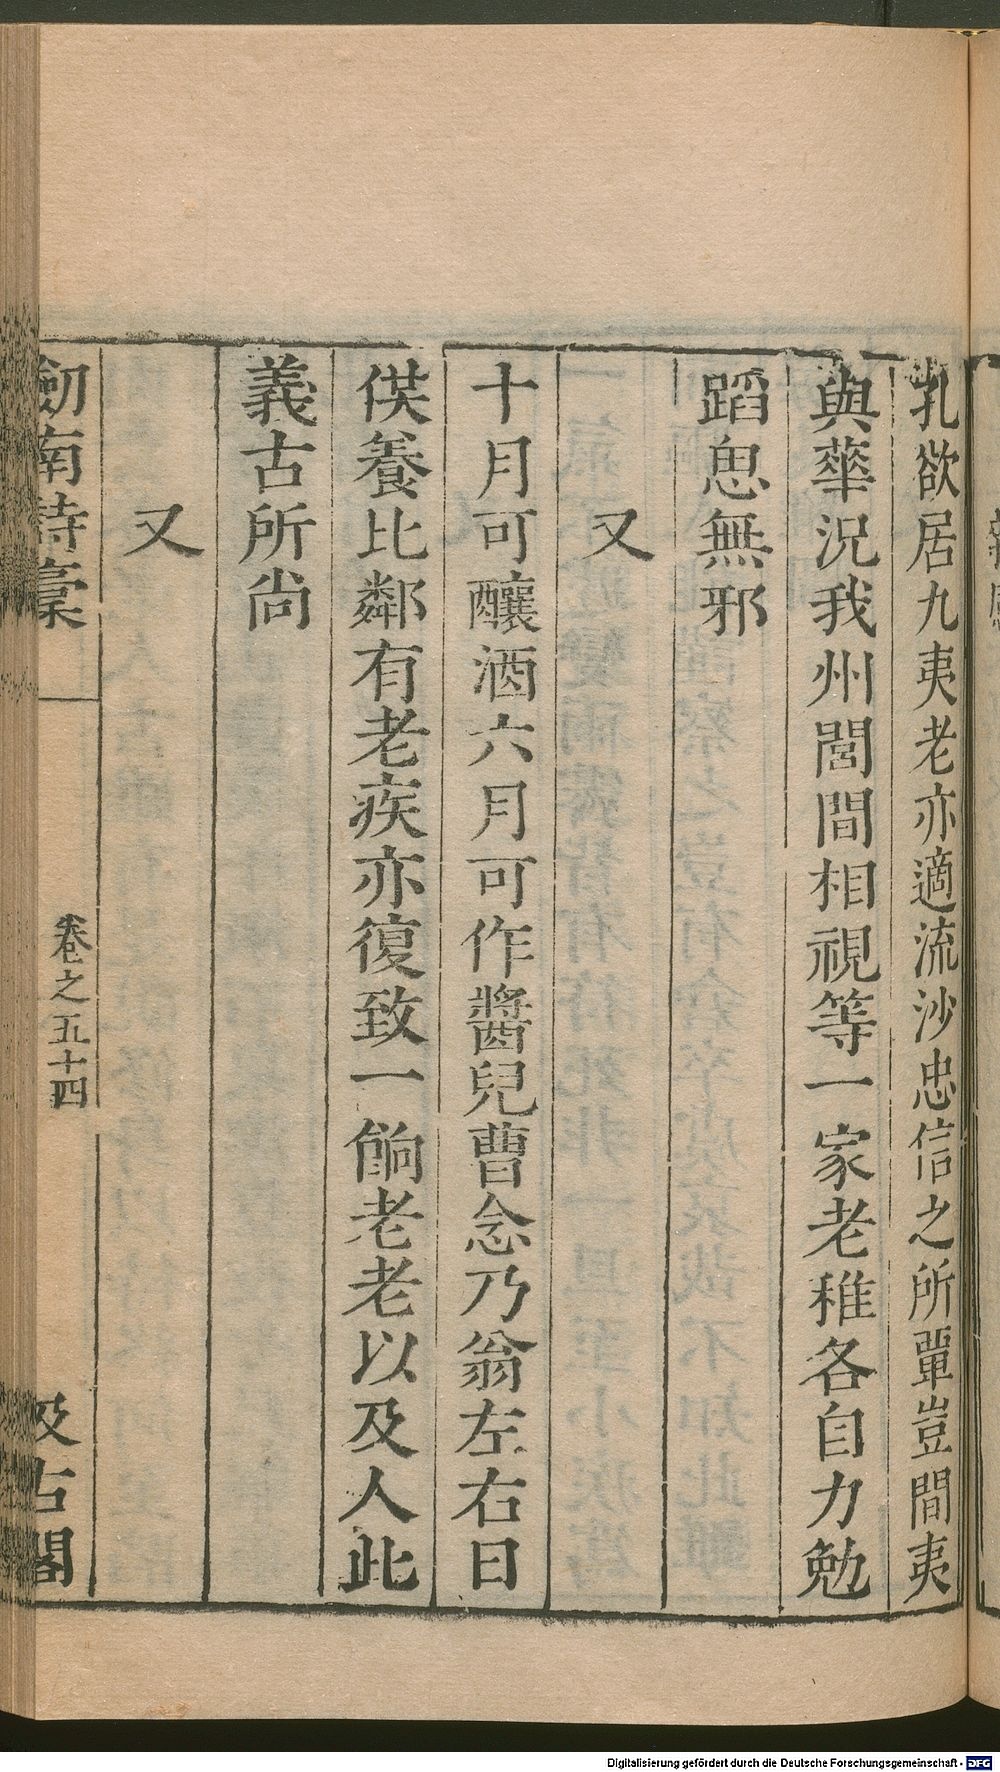 乳欲居九夷老亦適流沙忠信之所覃豈間夷
與華況我州閭間相視等一家老稚各自力勉
蹈思無邪
又
十月可釀酒六月可作醬兒曹念乃翁左右日
供養比鄰有老疾亦復致一餉老老以及人此
義古所尚
又
劒南詩稾
卷之五十四
汲古閣
Digitalisierung gefördert durch die Deutsche Forschungsgemeinschaft - DFG